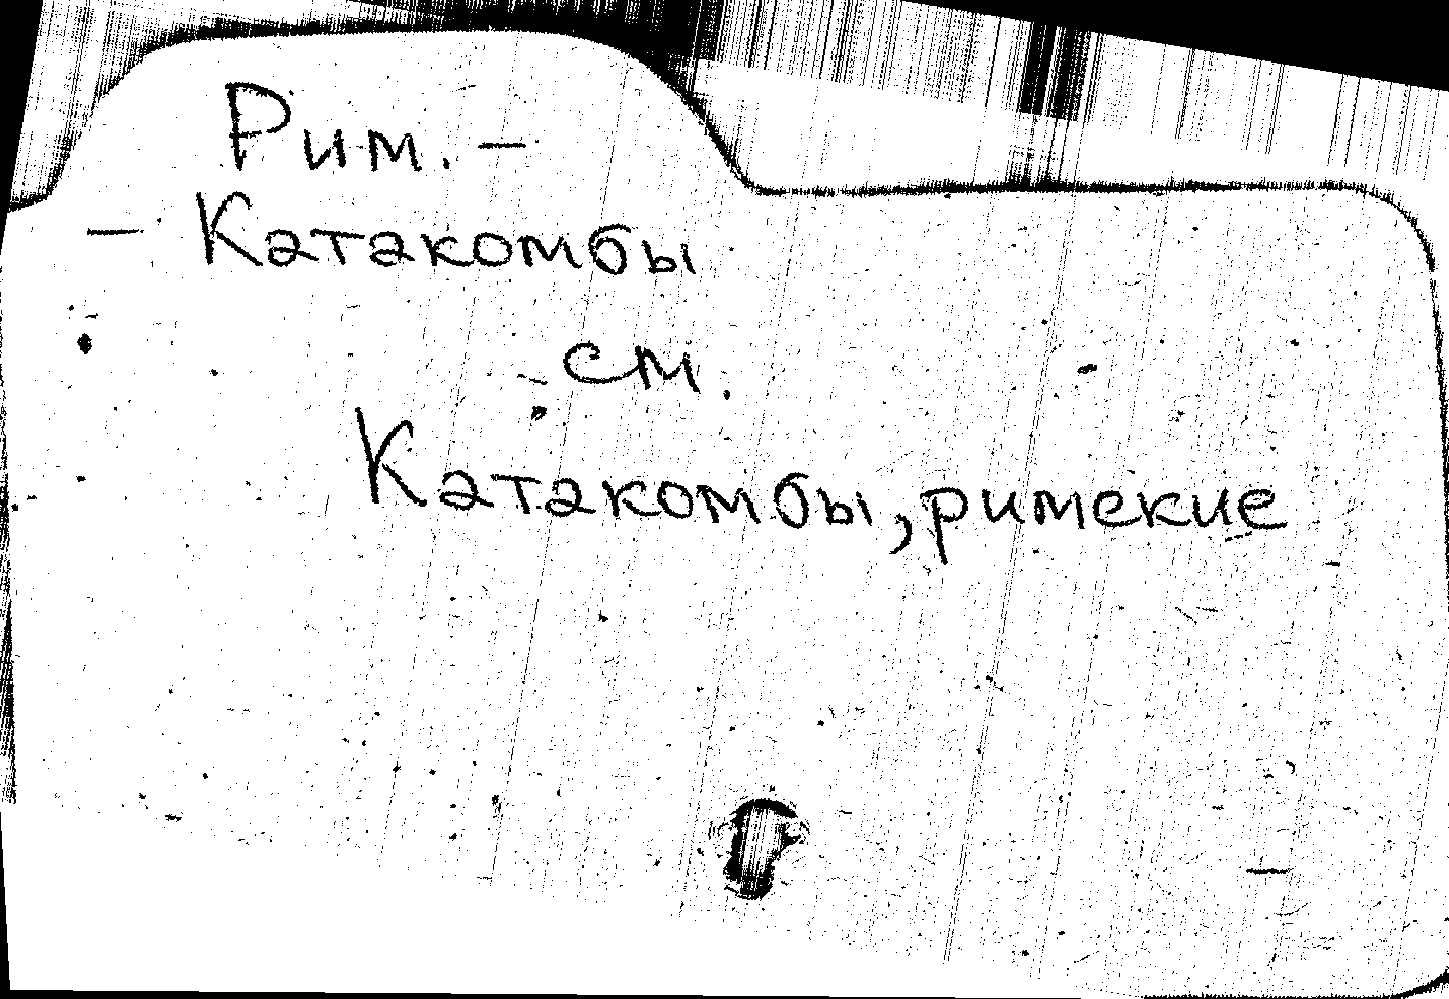 Рим. –
– Катакомбы
см.
Катакомбы, римские